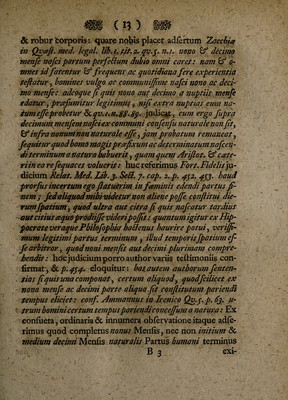 ( 13 )
& robur corporis: quare nobis placet adsertum Zacchiæ
in Quæst. med. legal. lib. 1. tit. 2. qv. 5. n. 1. nono & decimo
mense nasci partum perfectum dubio omni caret: nam & o-
mnes id fatentur & frequens ac quotidiana fere experientia
testatur, homines vulgo ac communissime nasci nono ac deci-
mo mense: adeoque si quis nono aut decimo a nuptiis mense
edatur, præsumitur legitimus, nisi extra nuptias eum na-
tum esse probetur & qv. 1. n. 88. 89. judicat, cum ergo supra
decimum mensem nasci ex communi consensu naturale non sit,
& infra nonum non naturale esse, jam probatum remaneat,
sequitur quod homo magis præfixum ac determinatum nascen-
di terminum a natura habuerit, quam quem Aristot. & cæte-
ri in eo sequaces voluere: huc referimus Fort. Fidelis ju-
dicium Relat. Med. Lib. 3. Sect. 7. cap. 2. p. 452. 453. haud
prorsus incertum ego statuerim in fæminis edendi partus fi-
nem; sed aliquod mihi videtur non aliene posse constitui di-
rum spatium, quod ultra aut citra si quis nascatur tardius
aut citius æquo prodiisse videri possit: quantum igitur ex Hip-
pocrate veraque Philosophia hactenus haurire potui, verissi-
mum legitimi partus terminum, illud temporis spatium es-
se arbitror, quod noni mensis aut decimi plurimum compre-
hendit: hoc judicium porro author variis testimoniis con-
firmat, & p. 454. eloquitur: has autem authorum senten-
tias si quis una componat, certum aliquod, quod scilicet ex
nono mense ac decimi parte aliqua sit constitutum pariendi
tempus eliciet: conf. Ammannus in Irenico Qv. 5. p. 63. u-
trum homini certum tempus pariendi concessum a natura: Ex
consueta, ordinaria & innumera observatione itaque adse-
rimus quod completus nonus Mensis, nec non initium &
medium decimi Mensis naturalis Partus humani terminus
B 3
exi-